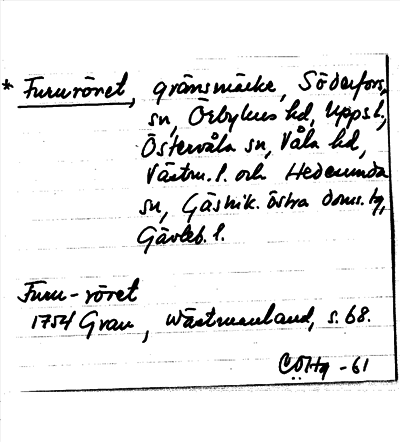 * Fururöret, gränsmärke, Söderfors
sn, Örbyhus hd, Upps.l.,
Östervåla sn, Våla hd,
Västm. l. och Hedesunda
sn, Gästrik. östra doms. tg,
Gävleb. l.
Furu-röret
1754 Grau, Wästmanland, s. 68.
CÖHg -61